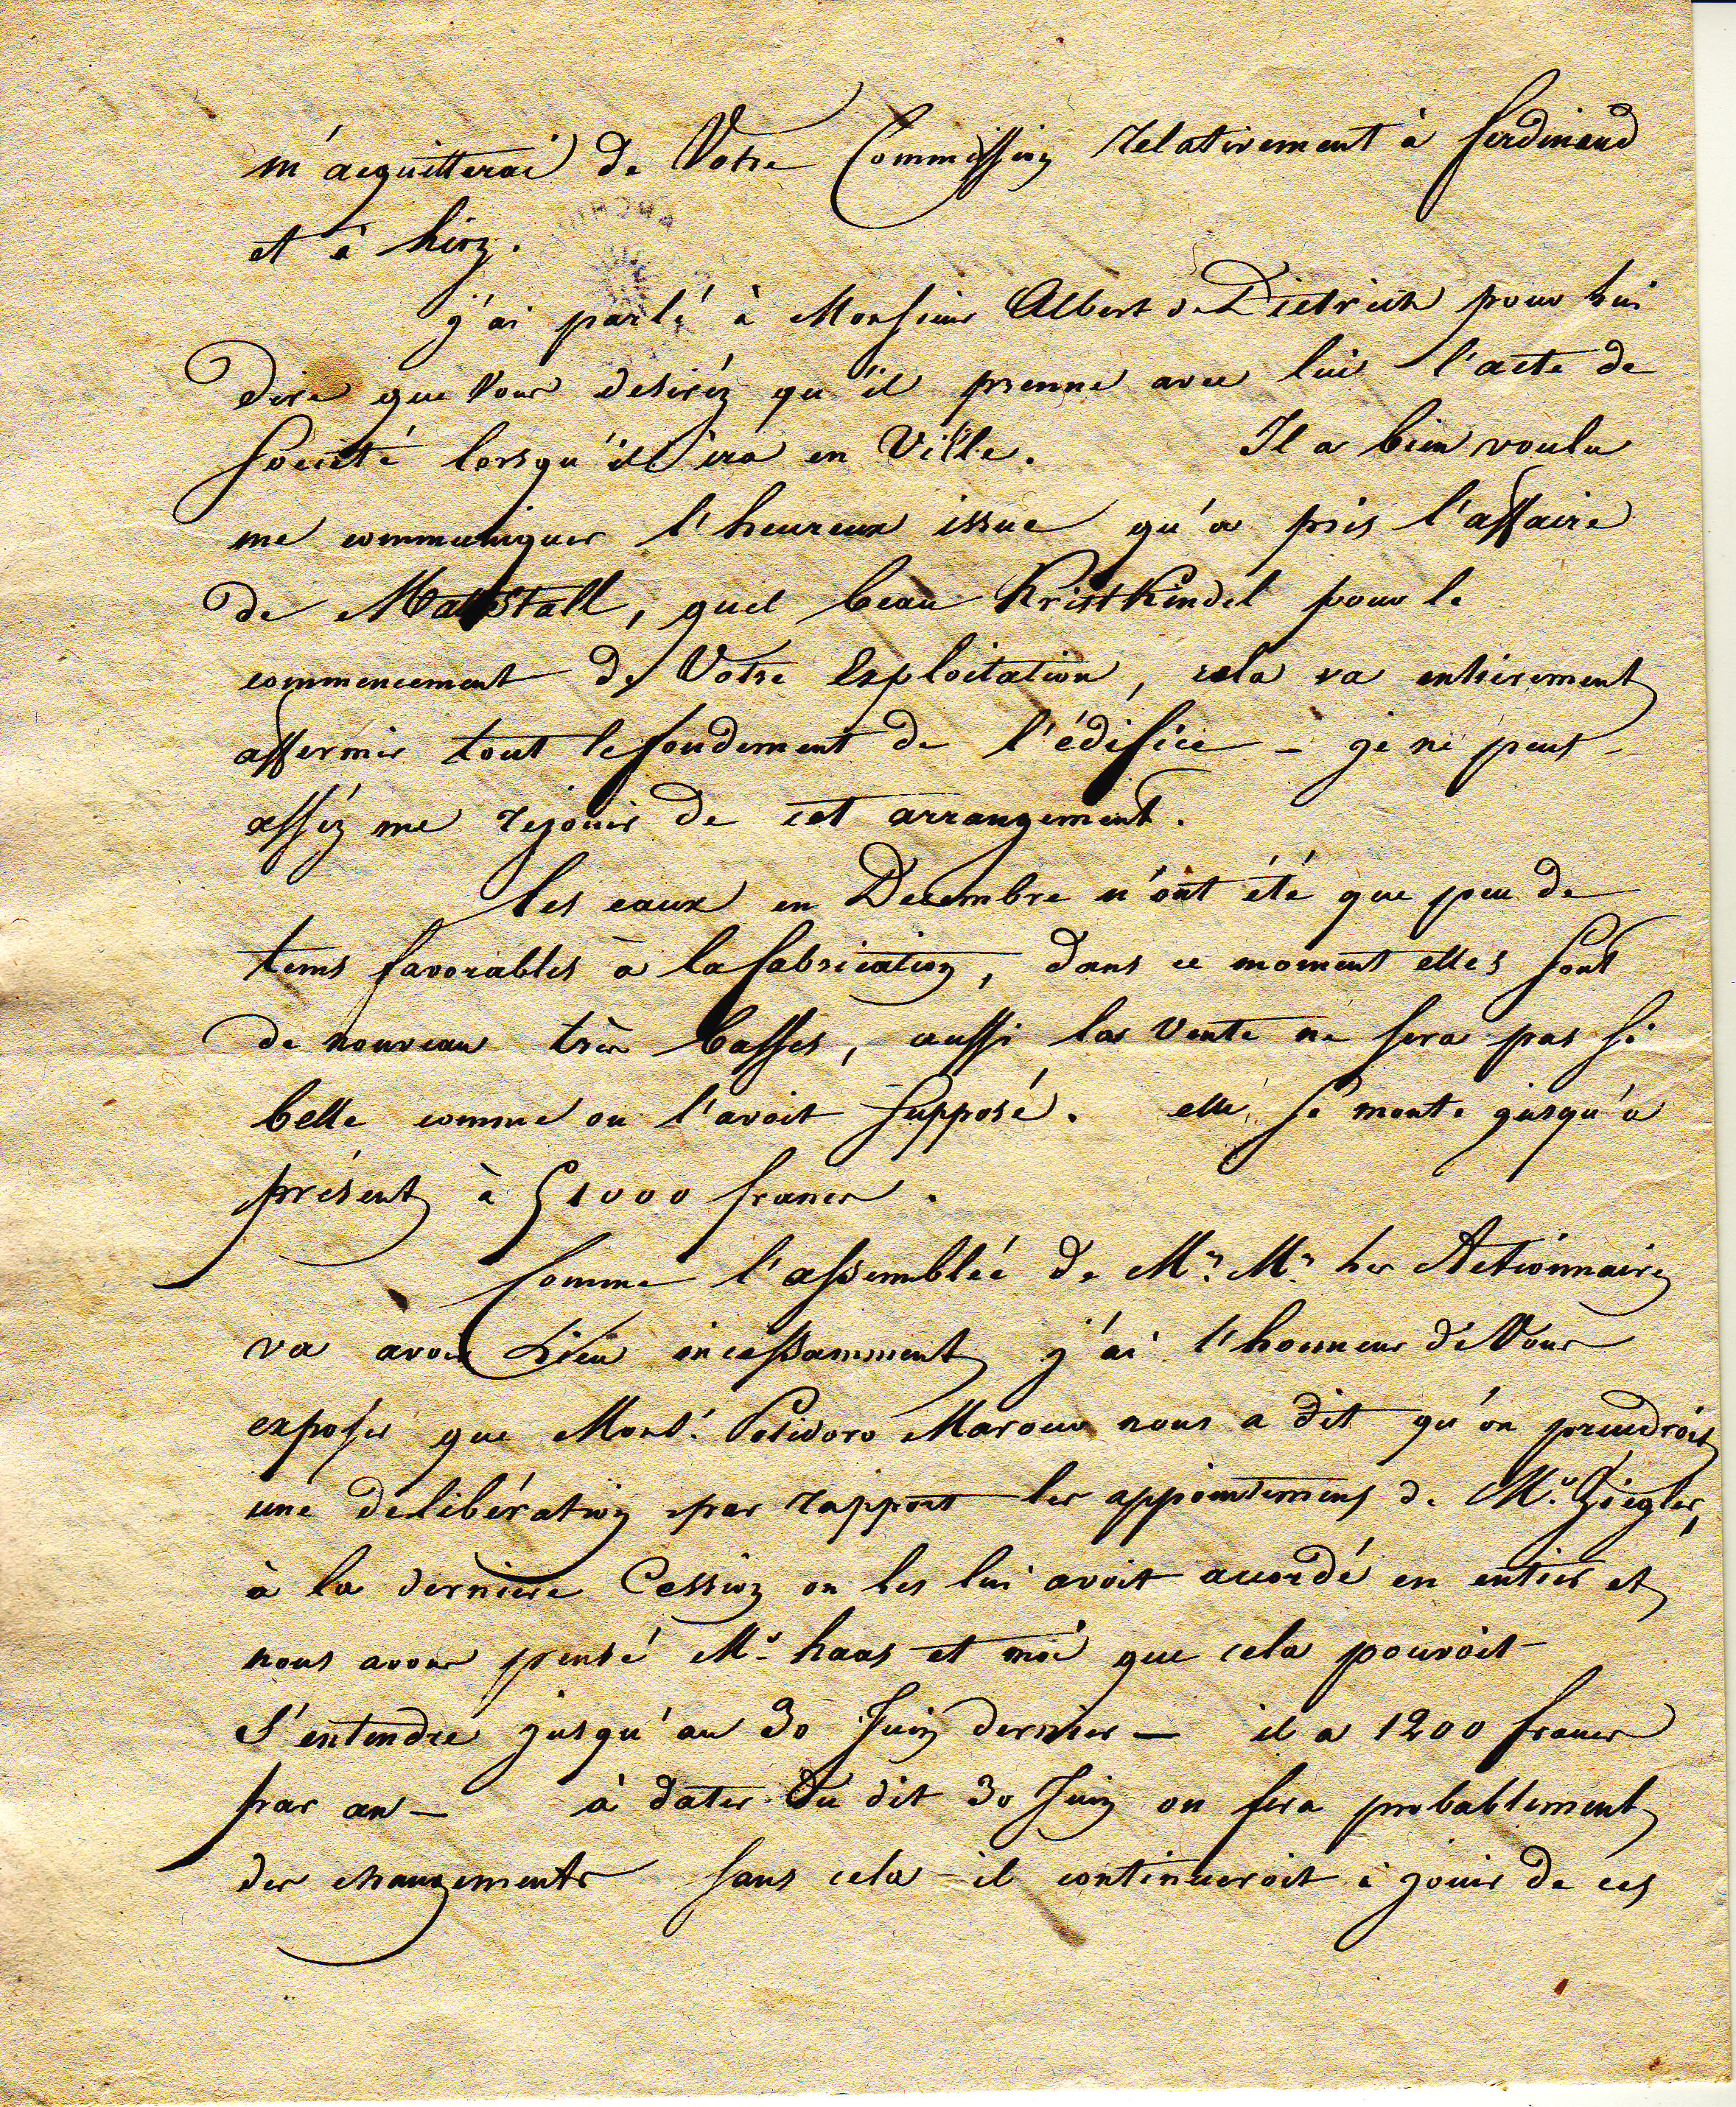 m'acquitterai de Votre Commission relativement à ferdinand
et à hirz.
j'ai parlé à Monsieur Albert de Dietrich pour lui
dire que Vous desiréz qu'il prenne avec lui l'acte de
société lorsqu'il ira en Ville. Il a bien voulu
me communiquer l'heureux issue qu'a pris l'affaire
de quel beau KristKindel pour le
commencement de Votre Exploitation, cela va entierement
affermir tout le fondement de l'édifice – je ne peus
asséz me rejouir de cet arrangement.
les eaux en Decembre n'ont été que peu de
tems favorables à la fabrication, dans ce moment elles sont
de nouveau très basses, aussi la Vente ne sera pas si
belle comme on l'avoit supposé. elle se monte jusqu'a
présent à 51000 francs.
Comme l'assemblée de Mrs. Mrs les Actionnaires
va avoir Lieu incessamment j'ai l'honneur de Vous
exposer que Monsr. Polidoro nous a dit qu'on prendroit
une deliberation par rapport les appointemens de Mr. Ziegler,
à la derniere Cession on les lui avoit accordé en entier et
nous avons pensé Mr. haas et moi que cela pouvoit
s'entendre jusqu'au 30 Juin dernier – il a 1200 francs
par an – à dater du dit 30 Juin on fera probablement
des changements sans cela il continueroit à jouir de ces